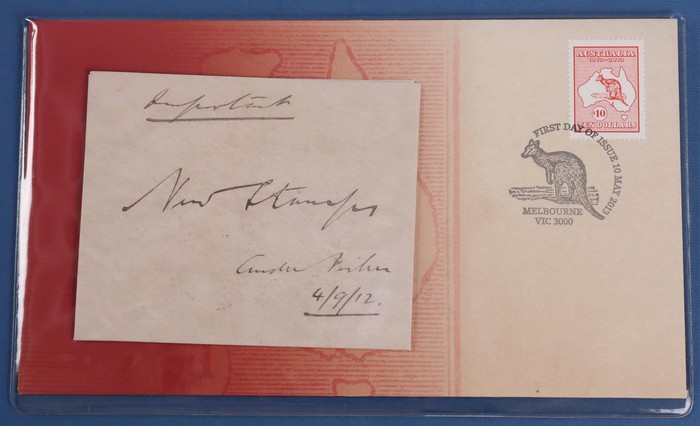 Important
New Stamps
Andw Fisher
4/9/12.
AUSTRALIA
1913-2013
$10
TEN DOLLARS
FIRST DAY OF ISSUE 10 MAY 2013
MELBOURNE
VIC 3000